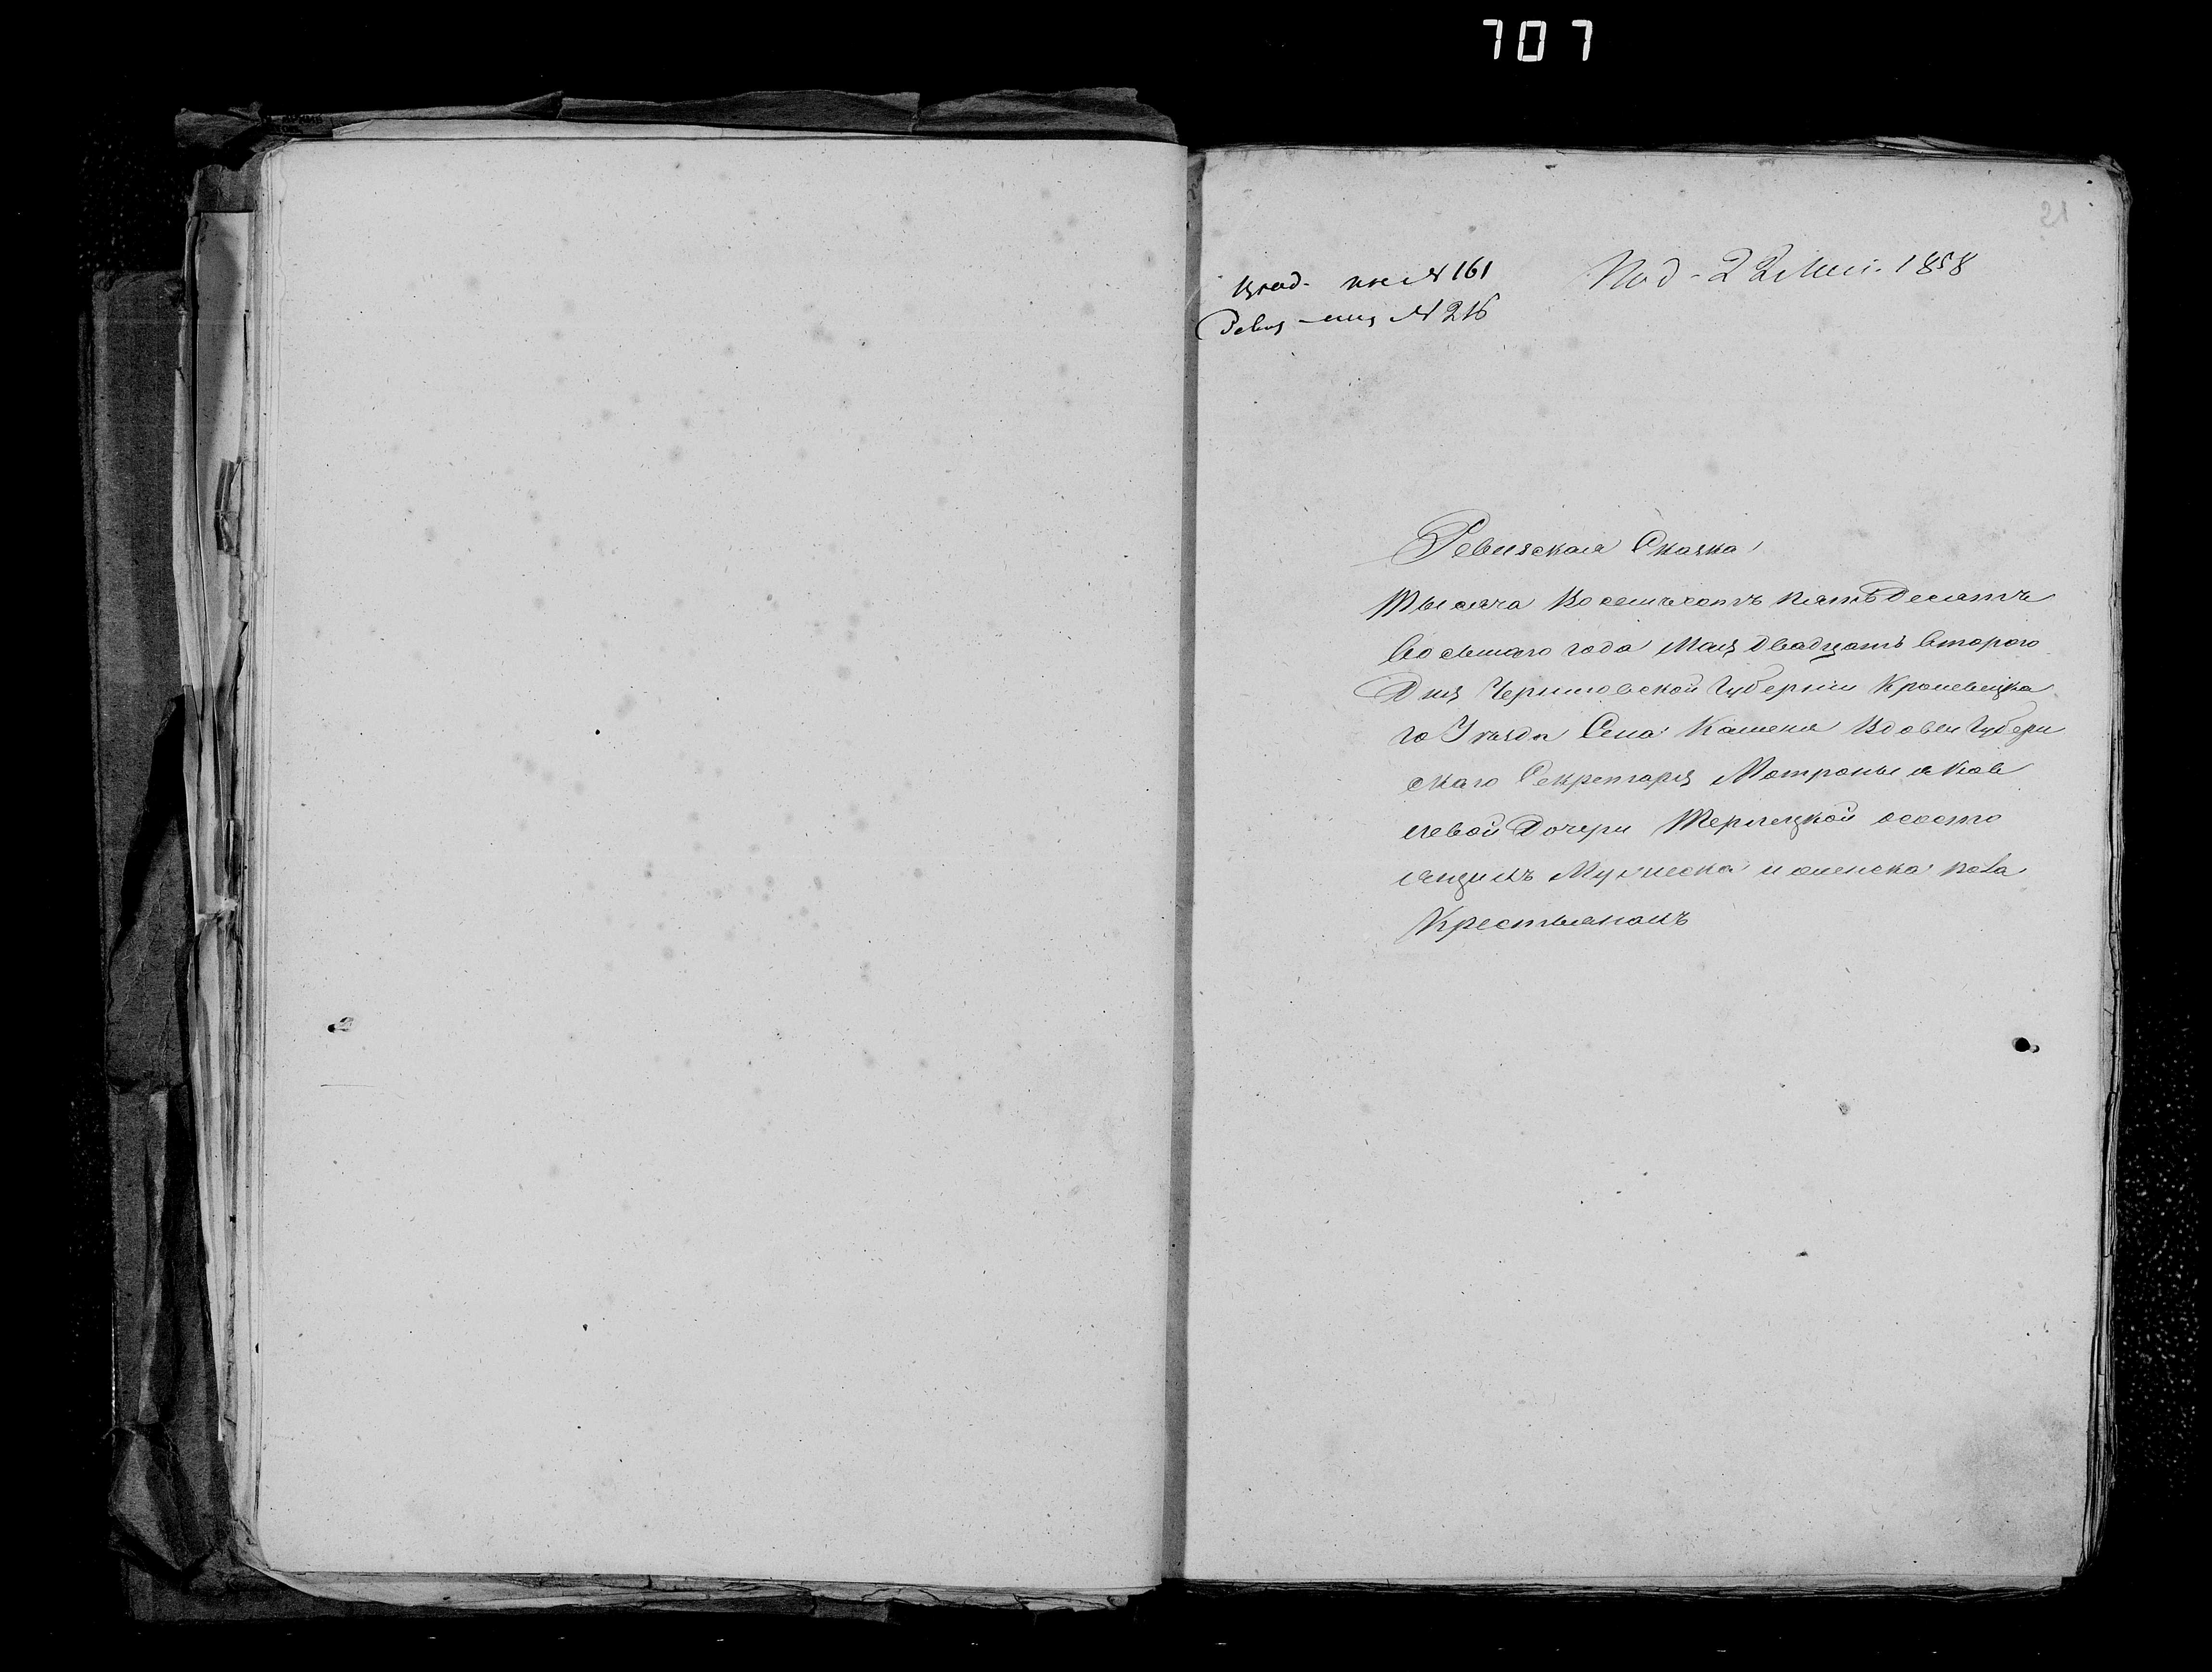 707
21
№ 161
№ 216
Под. 22 Мая. 1858
Ревизская Сказка
Тысяча Восемьсотъ пятьдесятъ
Восьмаго года Мая двадцать второго
Дня Черниговской Губернии Кролевецка
го Уезда Села Каменя Вдовы Губерн
скаго Секретаря Мотроны Яков
левой Дочери Терлецкой о состо
ящихъ Мужеска и женска пола
Крестьянахъ